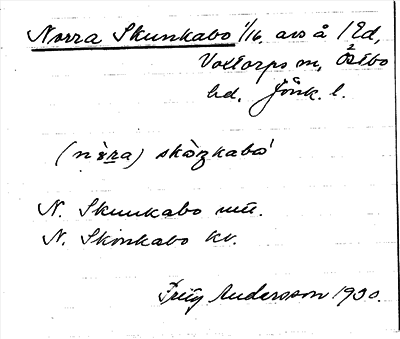 Norra Skunkabo 1/16. avs å 1 Ed,
Voxtorps sn, Östbo
hd. Jönk. l.
(nè̤ra) skàŋkabò
N. Skunkabo mü.
N. Skönkabo kv.
Fritz Andersson 1930.